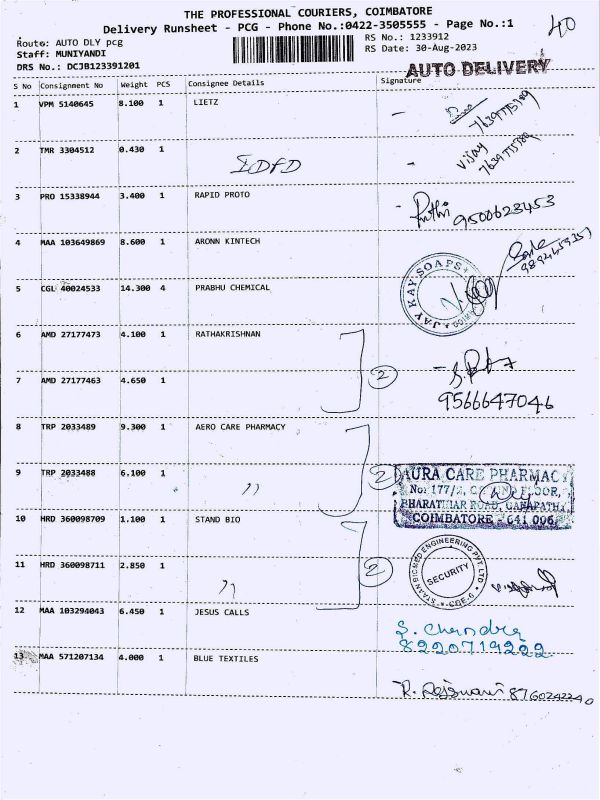 THE PROFESSIONAL COURIERS, COIMBATORE
Delivery Runsheet - PCG - Phone No.:0422-3505555 - Page No.:1
40
Route: AUTO DLY pcg
RS No.: 1233912
Staff: MUNIYANDI
RS Date: 30-Aug-2023
DRS No.: DCJB123391201
AUTO DELIVERY
S No Consignment No Weight PCS Consignee Details Signature
1 VPM 5140645 8.100 1 LIETZ
2 TMR 3304512 0.430 1 IDFD
Vijay
3 PRO 15338944 3.400 1 RAPID PROTO
9500623453
4 MAA 103649869 8.600 1 ARONN KINTECH
5 CGL 40024533 14.300 4 PRABHU CHEMICAL
JAY KAY SOAPS
6 AMD 27177473 4.100 1 RATHAKRISHNAN
2
7 AMD 27177463 4.650 1
9566647046
8 TRP 2033489 9.300 1 AERO CARE PHARMACY
9 TRP 2033488 6.100 1 ,,
2
AURA CARE PHARMACY
No: 177/
BHARATHIAR ROAD, GANAPATHY,
COIMBATORE - 641 006.
10 HRD 360098709 1.100 1 STAND BIO
11 HRD 360098711 2.850 1 ,,
2
ENGINEERING PVT. LTD
SECURITY
CBE-6
12 MAA 103294043 6.450 1 JESUS CALLS
S. Chandra
8220719222
13 MAA 571207134 4.000 1 BLUE TEXTILES
8760242240